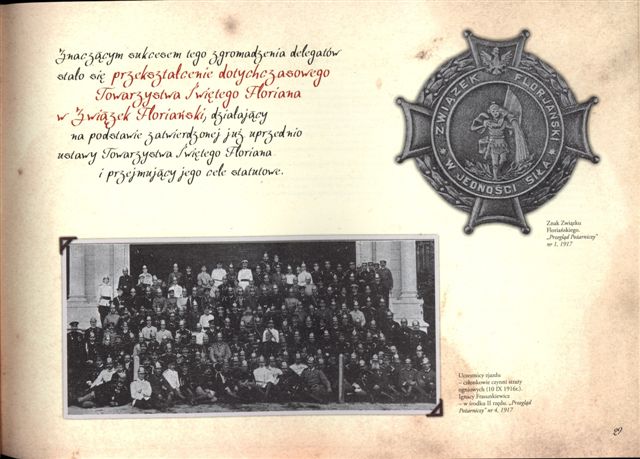 Znaczącym sukcesem tego zgromadzenia delegatów
stało się przekształcenie dotychczasowego
Towarzystwa Świętego Floriana
w Związek Floriański, działający
na podstawie zatwierdzonej już uprzednio
ustawy Towarzystwa Świętego Floriana
i przejmujący jego cele statutowe.
ZWIĄZEK FLORJAŃSKI
W JEDNOŚCI SIŁA
Znak Związku
Floriańskiego.
„Przegląd Pożarniczy"
nr 1, 1917
Uczestnicy zjazdu
– członkowie czynni straży
ogniowych (10 IX 1916r.).
Ignacy Frasunkiewicz
– w środku II rzędu. „Przegląd
Pożarniczy" nr 4, 1917
29